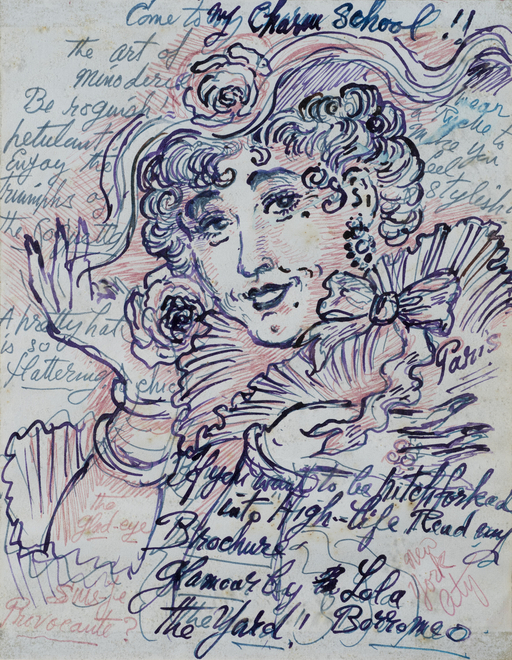 Come to my Charm School !!
the art of
minoderie
Be roguish!
petulant
enjoy the
triumphs of
the Coquette
wear
a
to
make you
feel
stylish
A pretty hat
is so
flattering
chic
Paris
If you want to be pitchforked
into High-Life Read my
Brochure
Glamour by Lola
the Yard!! Borromeo
the
glad-eye
Suis-je
Provocante?
New
York
City